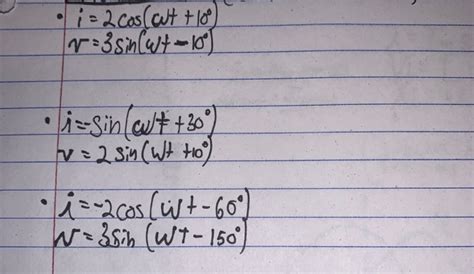 • i = 2cos(ωt + 10°)
v = 3sin(ωt - 10°)
• i = -Sin(ωt + 30°)
v = 2 sin(ωt + 10°)
• i = -2cos(ωt - 60°)
v = 3sin(ωt - 150°)